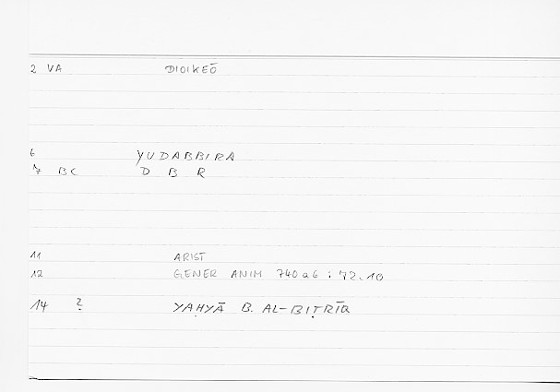 2 VA DIOIKEŌ
6 YUDABBIRA
7 BC D B R
11 ARIST
12 GENER ANIM 740a6 : 72.10
14 ? YAḤYĀ B. AL-BIṬRĪQ